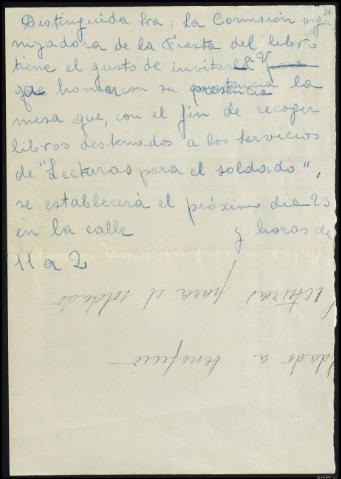 Distinguida Sra: La Comisión orga
nizadora de la Fiesta del libro
tiene el gusto de invitarla a
que honre con su presencia la
mesa que, con el fin de recoger
libros destinados a los servicios
de "Lecturas para el soldado",
se establecerá el próximo dia 23
en la calle y horas de
11 a 2
Lecturas para el soldado
ldado a beneficio